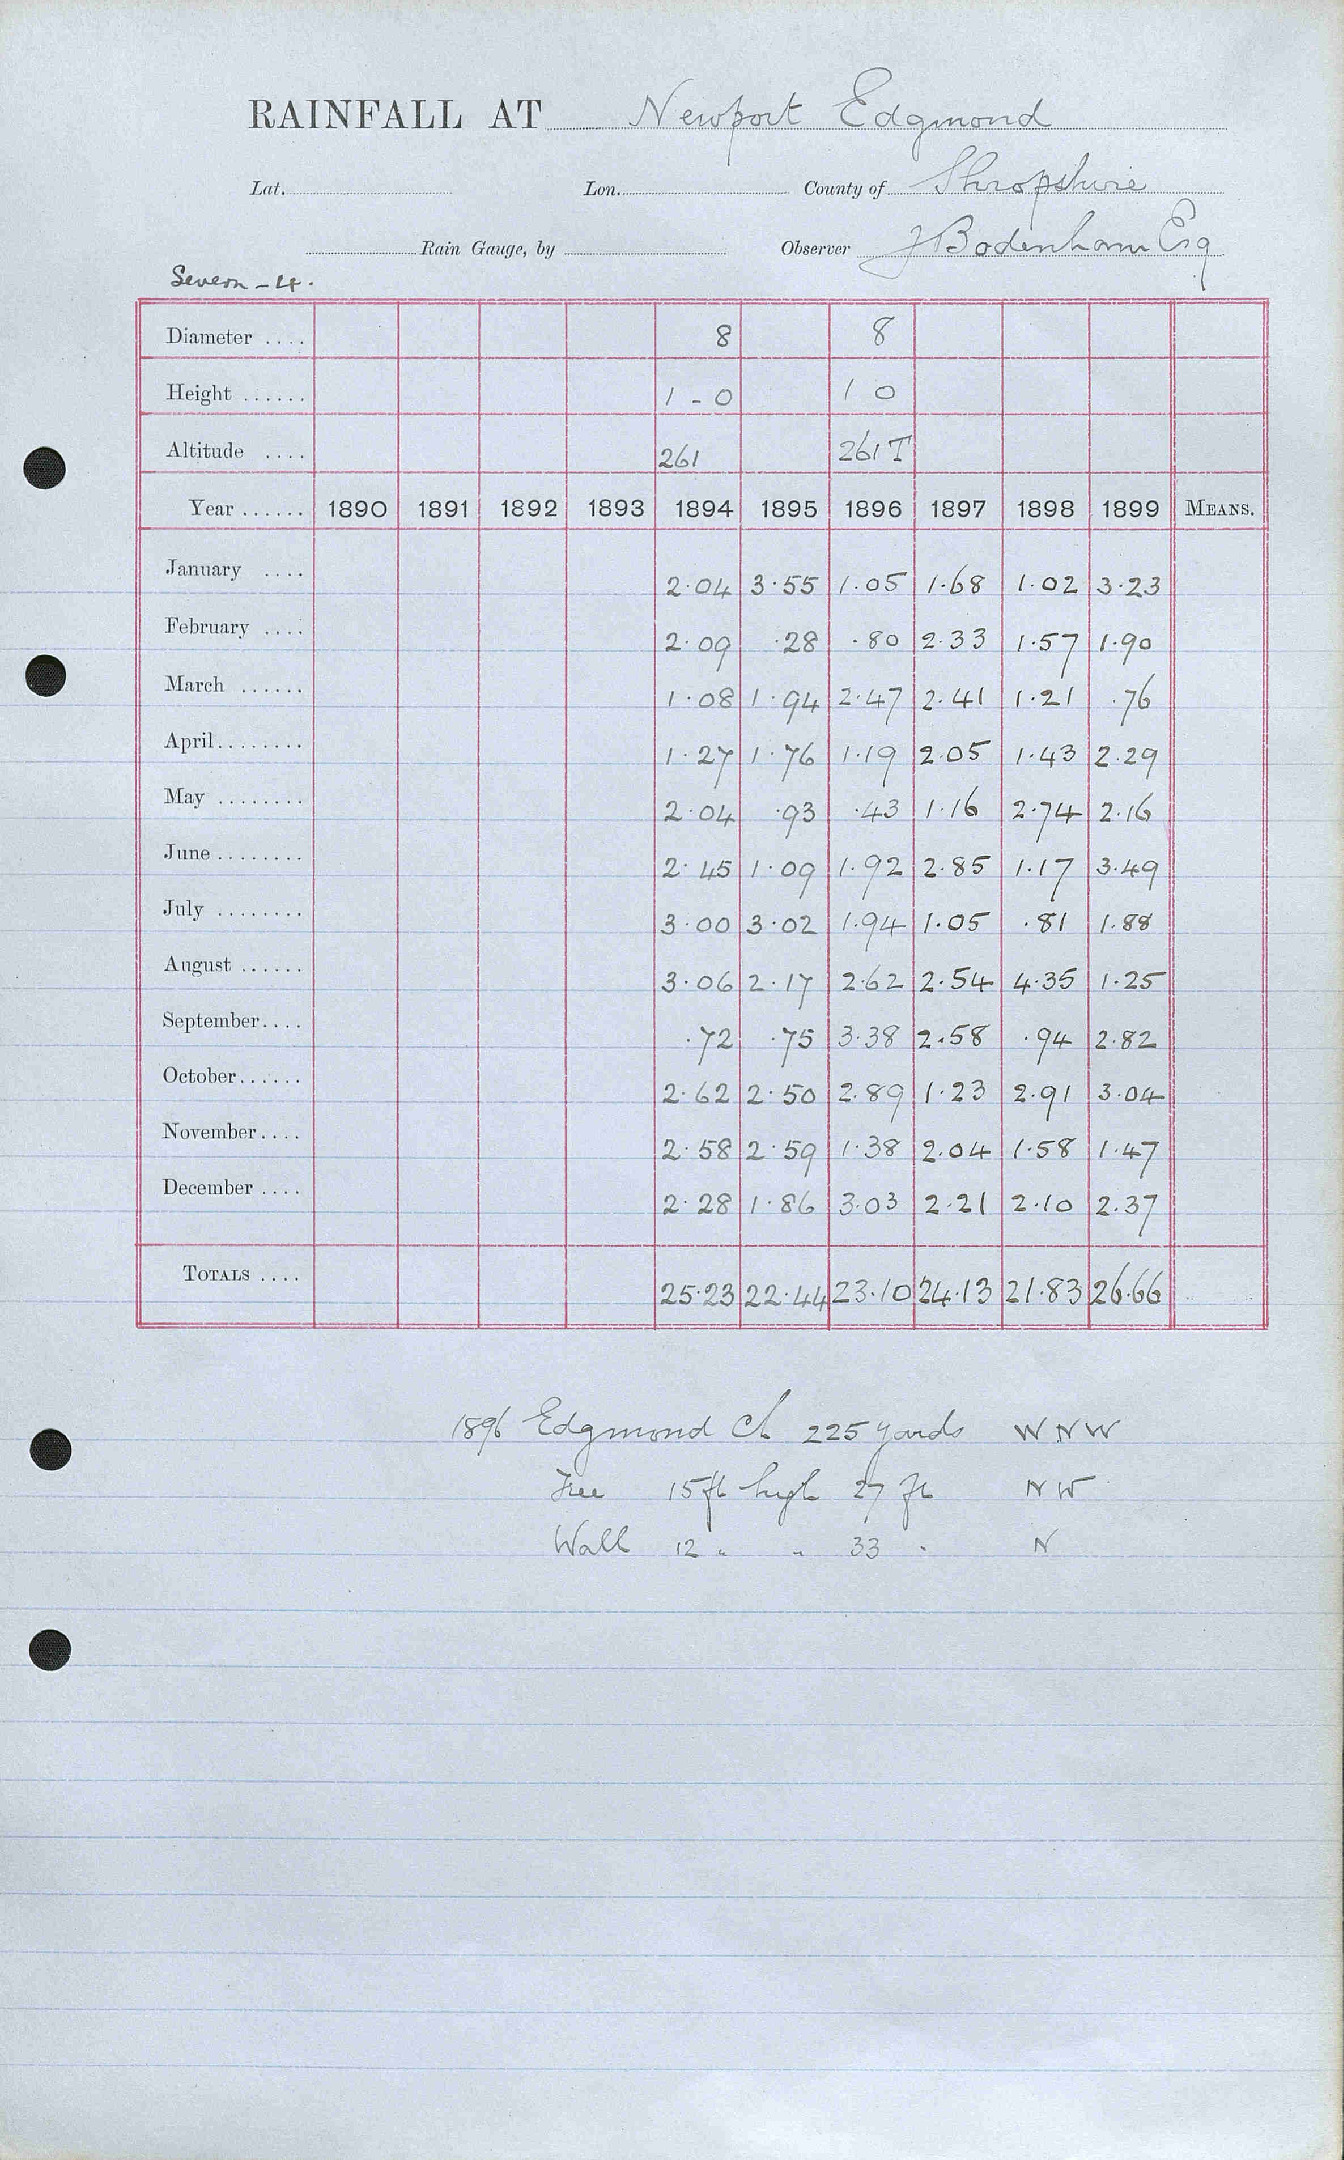 RAINFALL AT Newport Edgmond
Lat. Lon. County of Shropshire
Rain Gauge, by Observer J Bodenham Esq
Severn - 4.
Diameter .... 8 8
Height ...... 1 - 0 1 0
Altitude .... 261 261 T
Year ...... 1890 1891 1892 1893 1894 1895 1896 1897 1898 1899 MEANS.
January .... 2.04 3.55 1.05 1.68 1.02 3.23
February .... 2.09 .28 .80 2.33 1.57 1.90
March ...... 1.08 1.94 2.47 2.41 1.21 .76
April ........ 1.27 1.76 1.19 2.05 1.43 2.29
May ........ 2.04 .93 .43 1.16 2.74 2.16
June ........ 2.45 1.09 1.92 2.85 1.17 3.49
July ........ 3.00 3.02 1.94 1.05 .81 1.88
August ...... 3.06 2.17 2.62 2.54 4.35 1.25
September .... .72 .75 3.38 2.58 .94 2.82
October ...... 2.62 2.50 2.89 1.23 2.91 3.04
November .... 2.58 2.59 1.38 2.04 1.58 1.47
December .... 2.28 1.86 3.03 2.21 2.10 2.37
TOTALS .... 25.23 22.44 23.10 24.13 21.83 26.66
1896 Edgmond Ch 225 yards W N W
Tree 15 ft high 27 ft N W
Wall 12 " " 33 " N